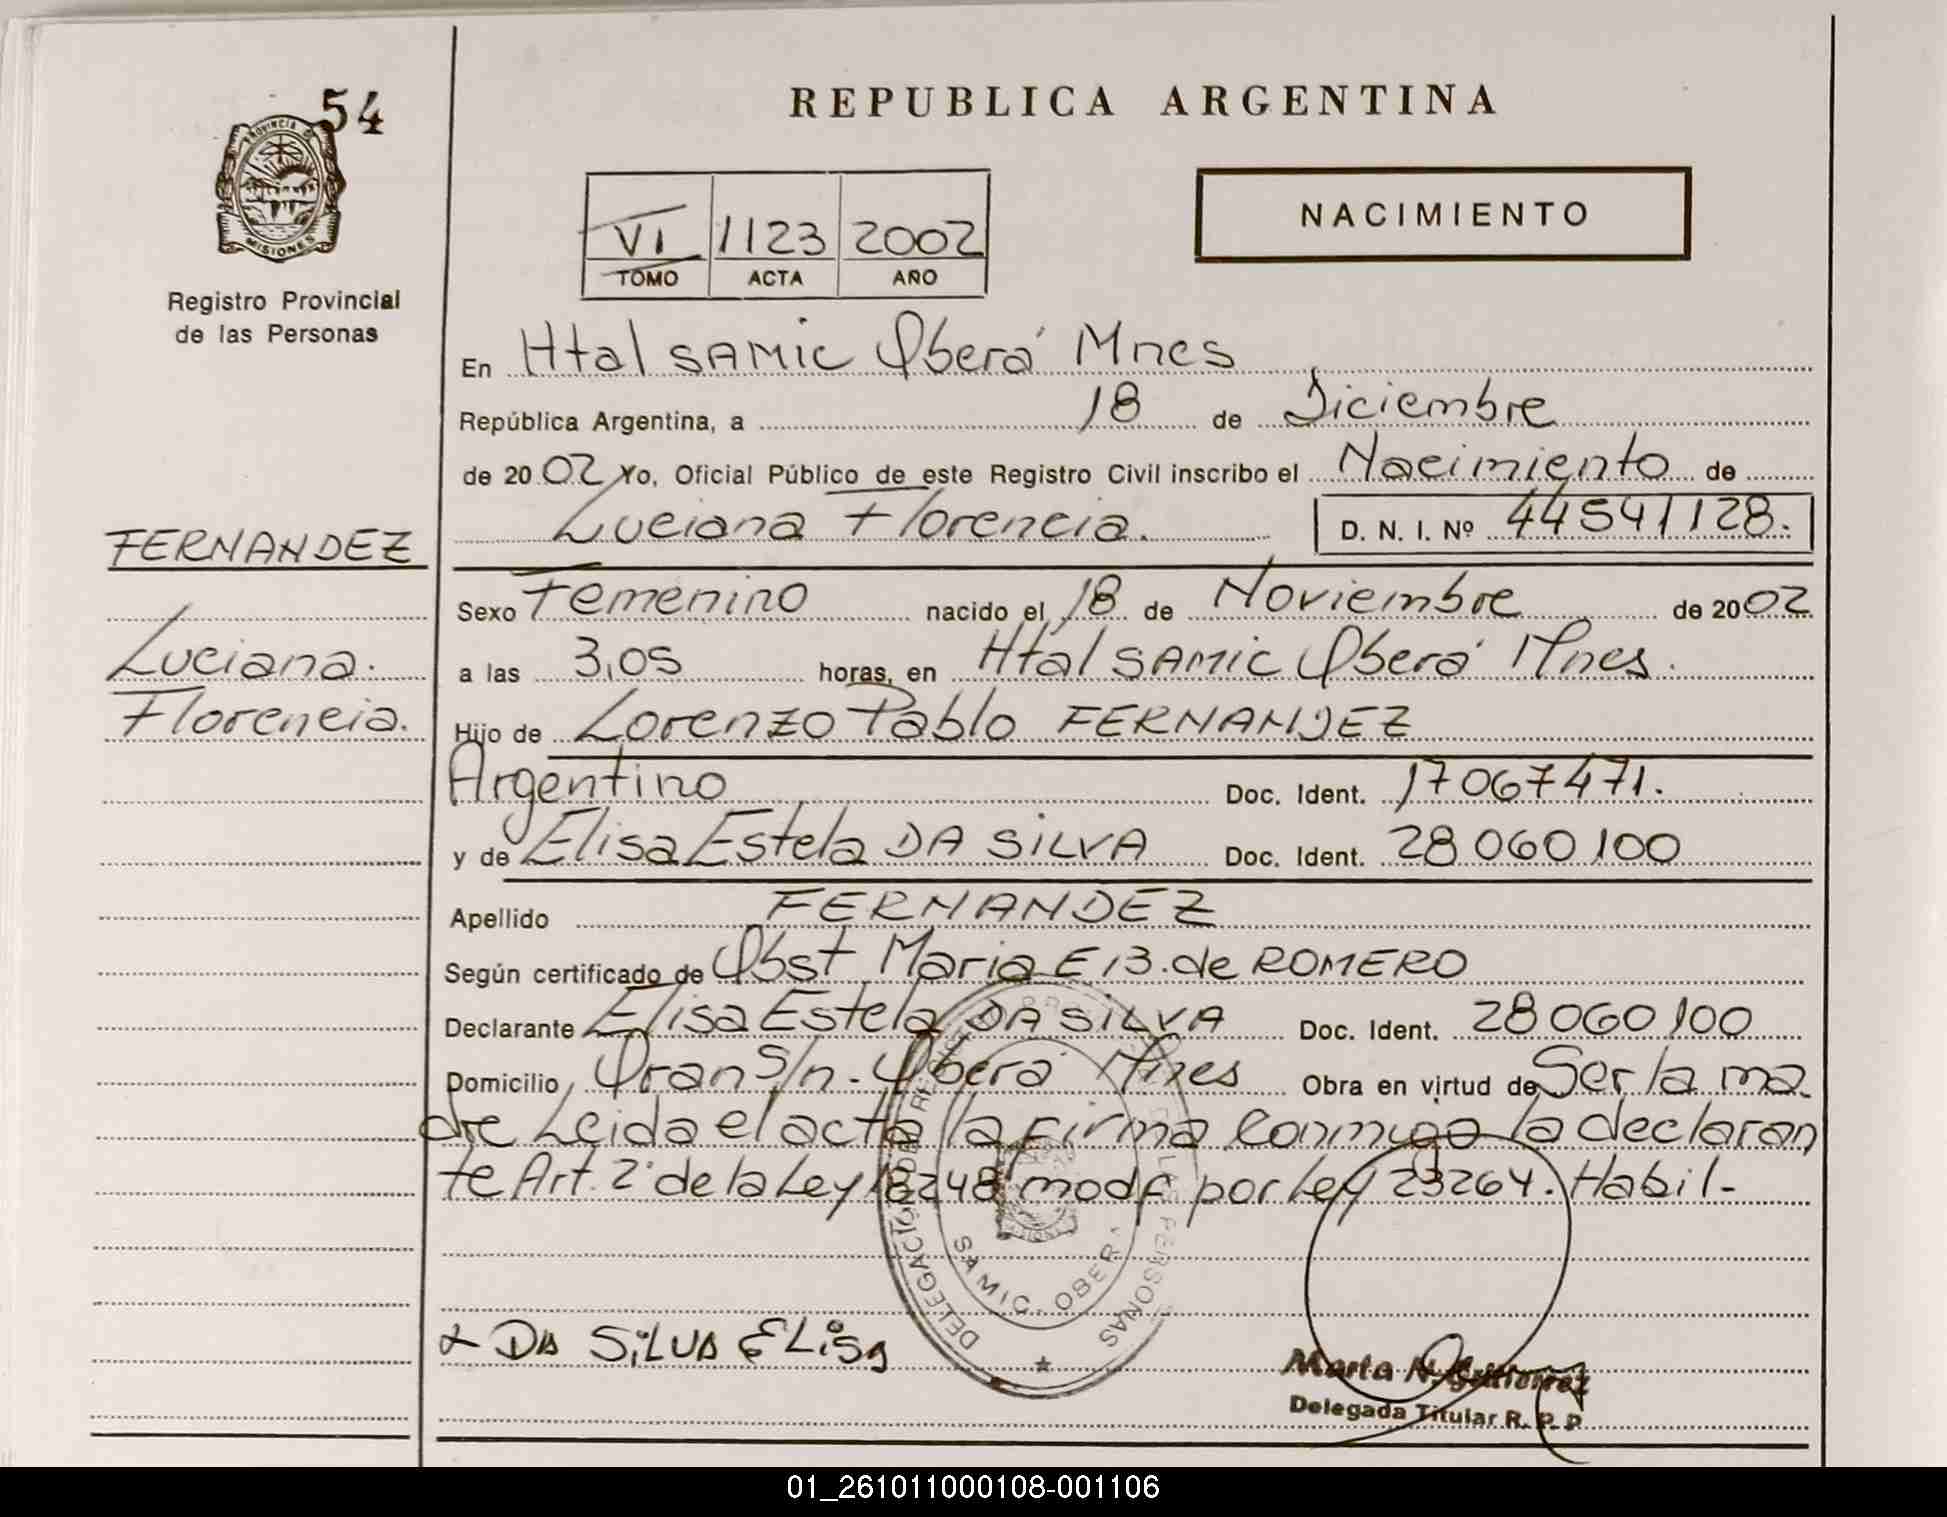 54
PROVINCIA DE
MISIONES
Registro Provincial
de las Personas
FERNANDEZ
Luciana.
Florencia.
REPUBLICA ARGENTINA
VI 1123 2002
TOMO ACTA AÑO
NACIMIENTO
En Htal SAMIC Oberá Mnes
República Argentina, a 18 de Diciembre
de 2002 Yo, Oficial Público de este Registro Civil inscribo el Nacimiento de
Luciana Florencia. D. N. I. Nº 44541128.
Sexo Femenino nacido el 18 de Noviembre de 2002
a las 3,05 horas, en Htal SAMIC Oberá Mnes.
Hijo de Lorenzo Pablo FERNANDEZ
Argentino Doc. Ident. 17067471.
y de Elisa Estela DA SILVA Doc. Ident. 28060100
Apellido FERNANDEZ
Según certificado de Obst Maria E B. de ROMERO
Declarante Elisa Estela DA SILVA Doc. Ident. 28060100
Domicilio Oran S/n. Oberá Mnes Obra en virtud de Ser la ma
dre Leida el acta la firma conmigo la declaran
te Art. 2º de la Ley 18248 modf por Ley 23264. Habil-
DELEGACION DE REGISTRO PROVINCIAL DE LAS PERSONAS
SAMIC - OBERA
DA SiLVA ELisa
Marta N. Gutierrez
Delegada Titular R. P. P
01_261011000108-001106